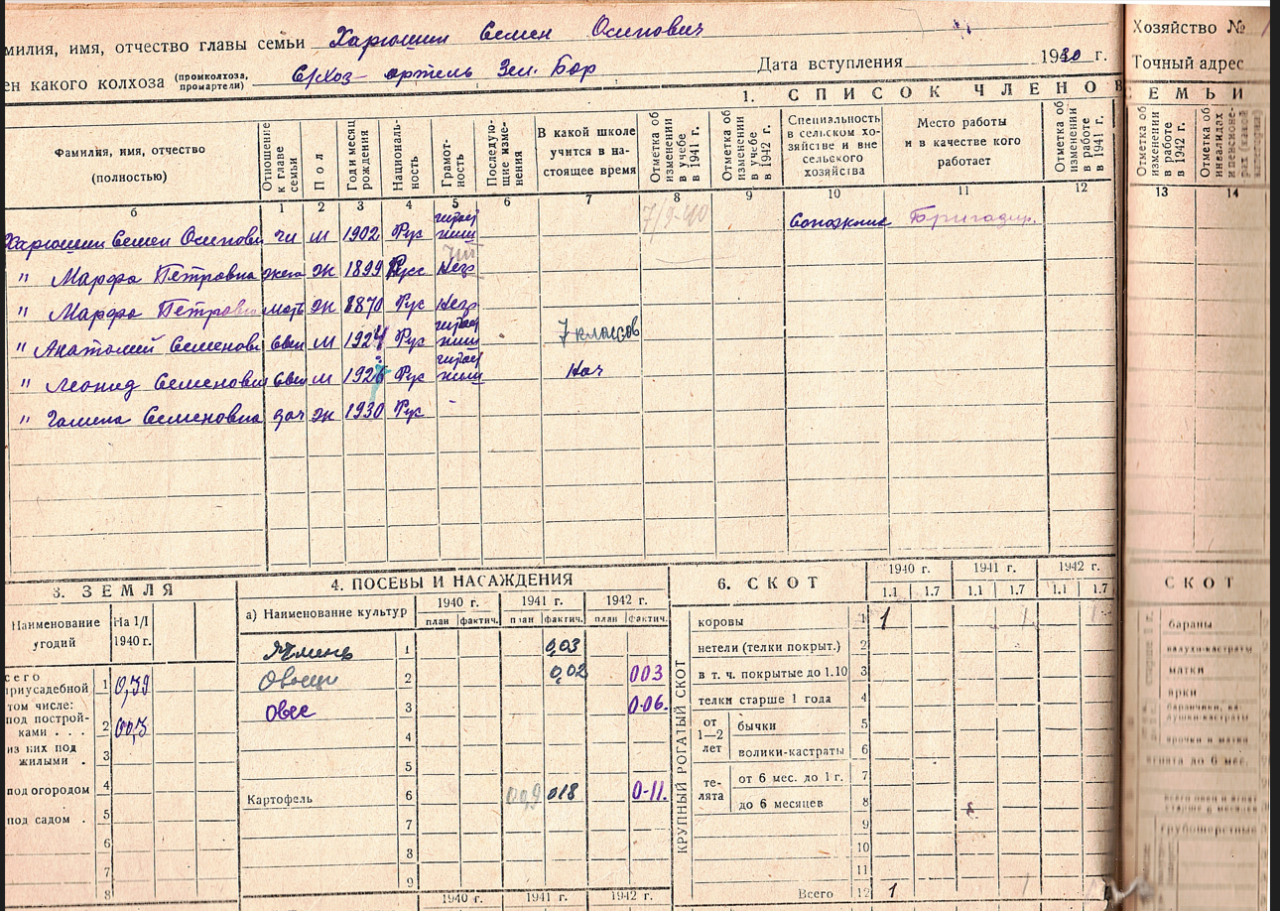 амилия, имя, отчество главы семьи Харюшин Семен Осипович
ен какого колхоза (промколхоза, промартели) С/хоз- артель Зел. Бор Дата вступления 1930 г.
Хозяйство №
Точный адрес
1. СПИСОК ЧЛЕНОВ СЕМЬИ
Фамилия, имя, отчество (полностью)
Отношение к главе семьи
Пол
Год и месяц рождения
Националь-ность
Грамот-ность
Последую-щие изме-нения
В какой школе учится в на-стоящее время
Отметка об изменении в учебе в 1941 г.
Отметка об изменении в учебе в 1942 г.
Специальность в сельском хо-зяйстве и вне сельского хозяйства
Место работы и в качестве кого работает
Отметка об изменении в работе в 1941 г.
Отметка об изменении в работе в 1942 г.
Отметка об инвалидах
б 1 2 3 4 5 6 7 8 9 10 11 12 13 14
Харюшин Семен Осипови м 1902 Рус Сапожник Бригадир.
" Марфа Петровна жена ж 1899 Русс Негр
" Марфа Петровн мать ж 1870 Рус Негр
" Анатолий Семенови свин м 1924 Рус 7 классов
" Леонид Семенови свин м 192 Рус Нач
" Галина Семеновна доч ж 1930 Рус -
3. ЗЕМЛЯ
Наименование угодий
На 1/I 1940 г.
сего приусадебной 1 0,39
том числе:
под построй-ками . . . 2 00,3
из них под жилыми . 3
под огородом 4
под садом . 5
6
7
8
4. ПОСЕВЫ И НАСАЖДЕНИЯ
а) Наименование культур
1940 г. 1941 г. 1942 г.
план фактич. план фактич. план фактич.
Ячмень 1 0,03
Овощи 2 0,02 003
Овес 3 0-06.
4
5
Картофель 6 009 018 0-11.
7
8
9
1940 г. 1941 г. 1942 г.
6. СКОТ
1940 г. 1941 г. 1942 г.
1.1 1.7 1.1 1.7 1.1 1.7
КРУПНЫЙ РОГАТЫЙ СКОТ
коровы 1 1
нетели (телки покрыт.) 2
в т. ч. покрытые до 1.10 3
телки старше 1 года 4
от 1—2 лет
бычки 5
волики-кастраты 6
те-лята
от 6 мес. до 1 г. 7
до 6 месяцев 8
9
10
11
Всего 12 1
СКОТ
бараны
валухи-кастраты
матки
ярки
до 6 мес.
грубошерстные